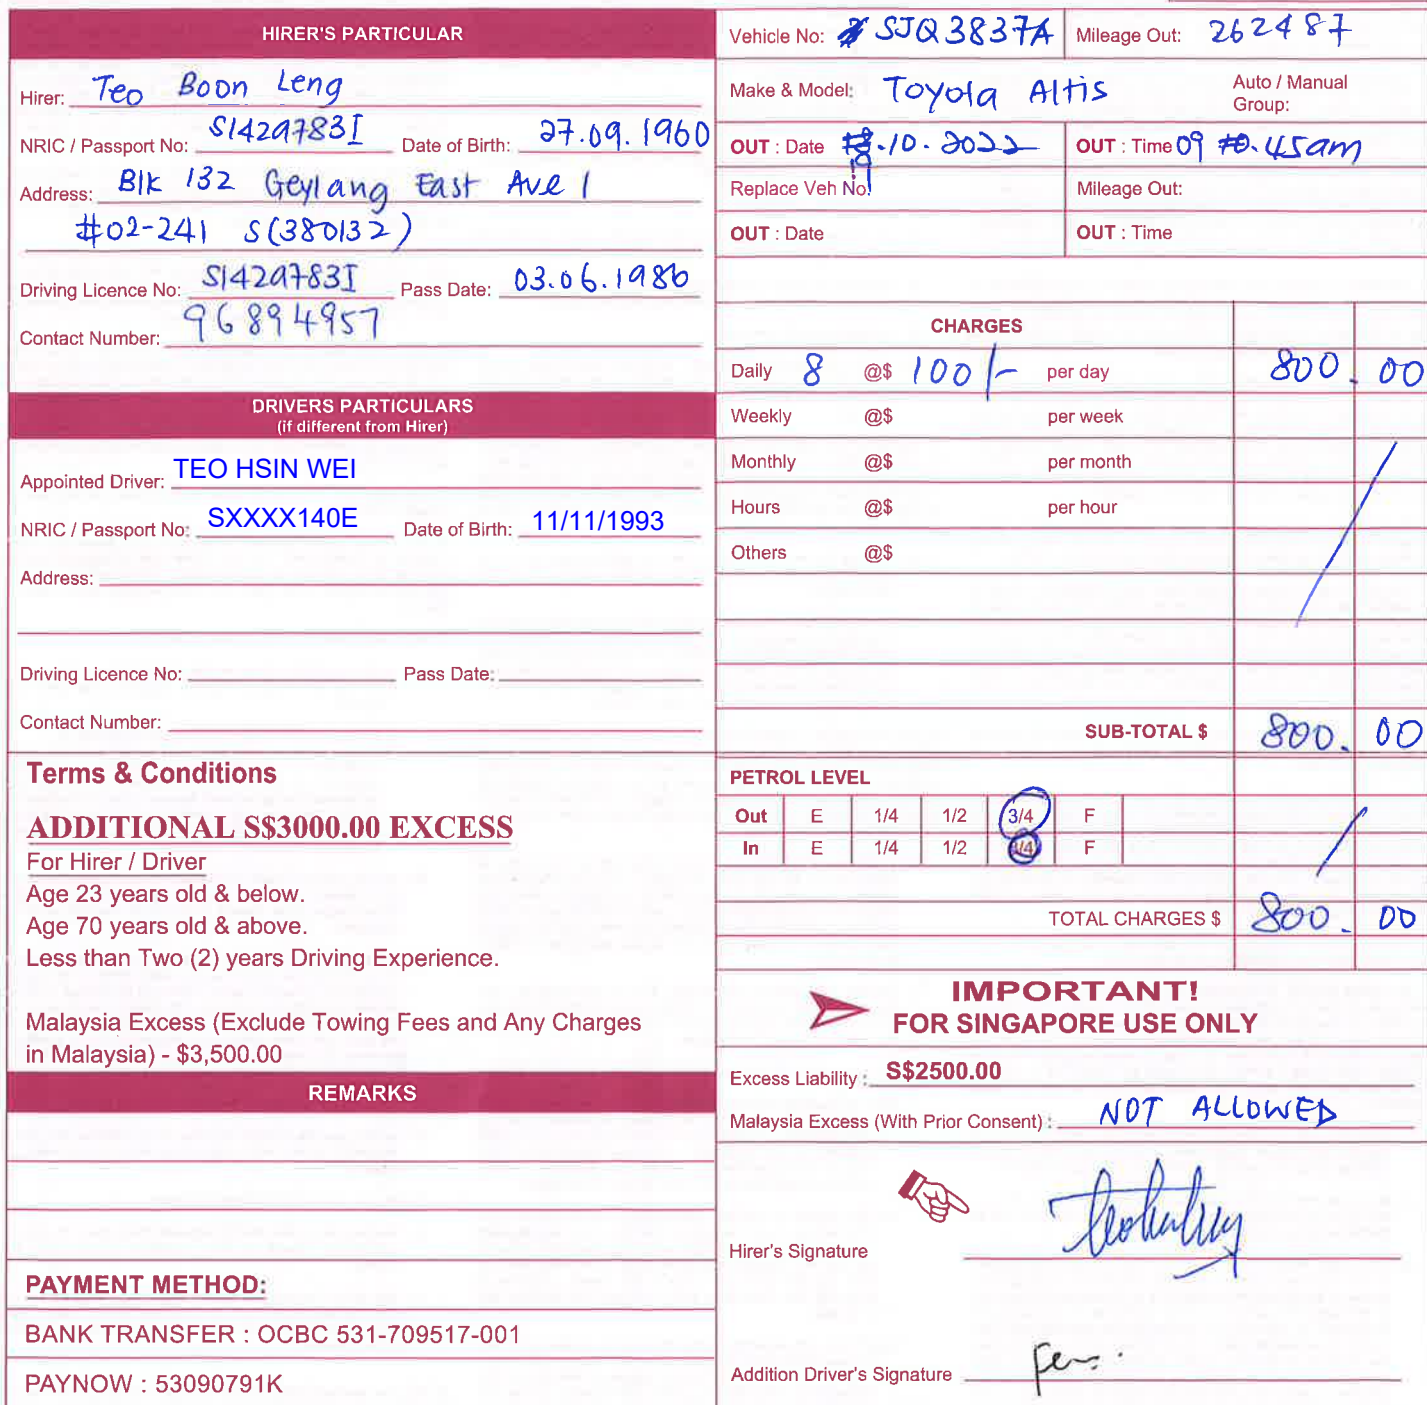 HIRER'S PARTICULAR
Hirer: Teo Boon Leng
NRIC / Passport No: S1429783I Date of Birth: 27.09.1960
Address: Blk 132 Geylang East Ave 1
#02-241 S(380132)
Driving Licence No: S1429783I Pass Date: 03.06.1986
Contact Number: 96894957
DRIVERS PARTICULARS
(if different from Hirer)
Appointed Driver: TEO HSIN WEI
NRIC / Passport No: SXXXX140E Date of Birth: 11/11/1993
Address:
Driving Licence No: Pass Date:
Contact Number:
Terms & Conditions
ADDITIONAL S$3000.00 EXCESS
For Hirer / Driver
Age 23 years old & below.
Age 70 years old & above.
Less than Two (2) years Driving Experience.
Malaysia Excess (Exclude Towing Fees and Any Charges
in Malaysia) - $3,500.00
REMARKS
PAYMENT METHOD:
BANK TRANSFER : OCBC 531-709517-001
PAYNOW : 53090791K
Vehicle No: SJQ3837A Mileage Out: 262487
Make & Model: Toyota Altis Auto / Manual
Group:
OUT : Date 19.10.2022 OUT : Time 09.45am
Replace Veh No: Mileage Out:
OUT : Date OUT : Time
CHARGES
Daily 8 @$ 100/- per day 800.00
Weekly @$ per week
Monthly @$ per month
Hours @$ per hour
Others @$
SUB-TOTAL $ 800.00
PETROL LEVEL
Out E 1/4 1/2 3/4 F
In E 1/4 1/2 3/4 F
TOTAL CHARGES $ 800.00
IMPORTANT!
FOR SINGAPORE USE ONLY
Excess Liability : S$2500.00
Malaysia Excess (With Prior Consent) : NOT ALLOWED
Hirer's Signature
Addition Driver's Signature